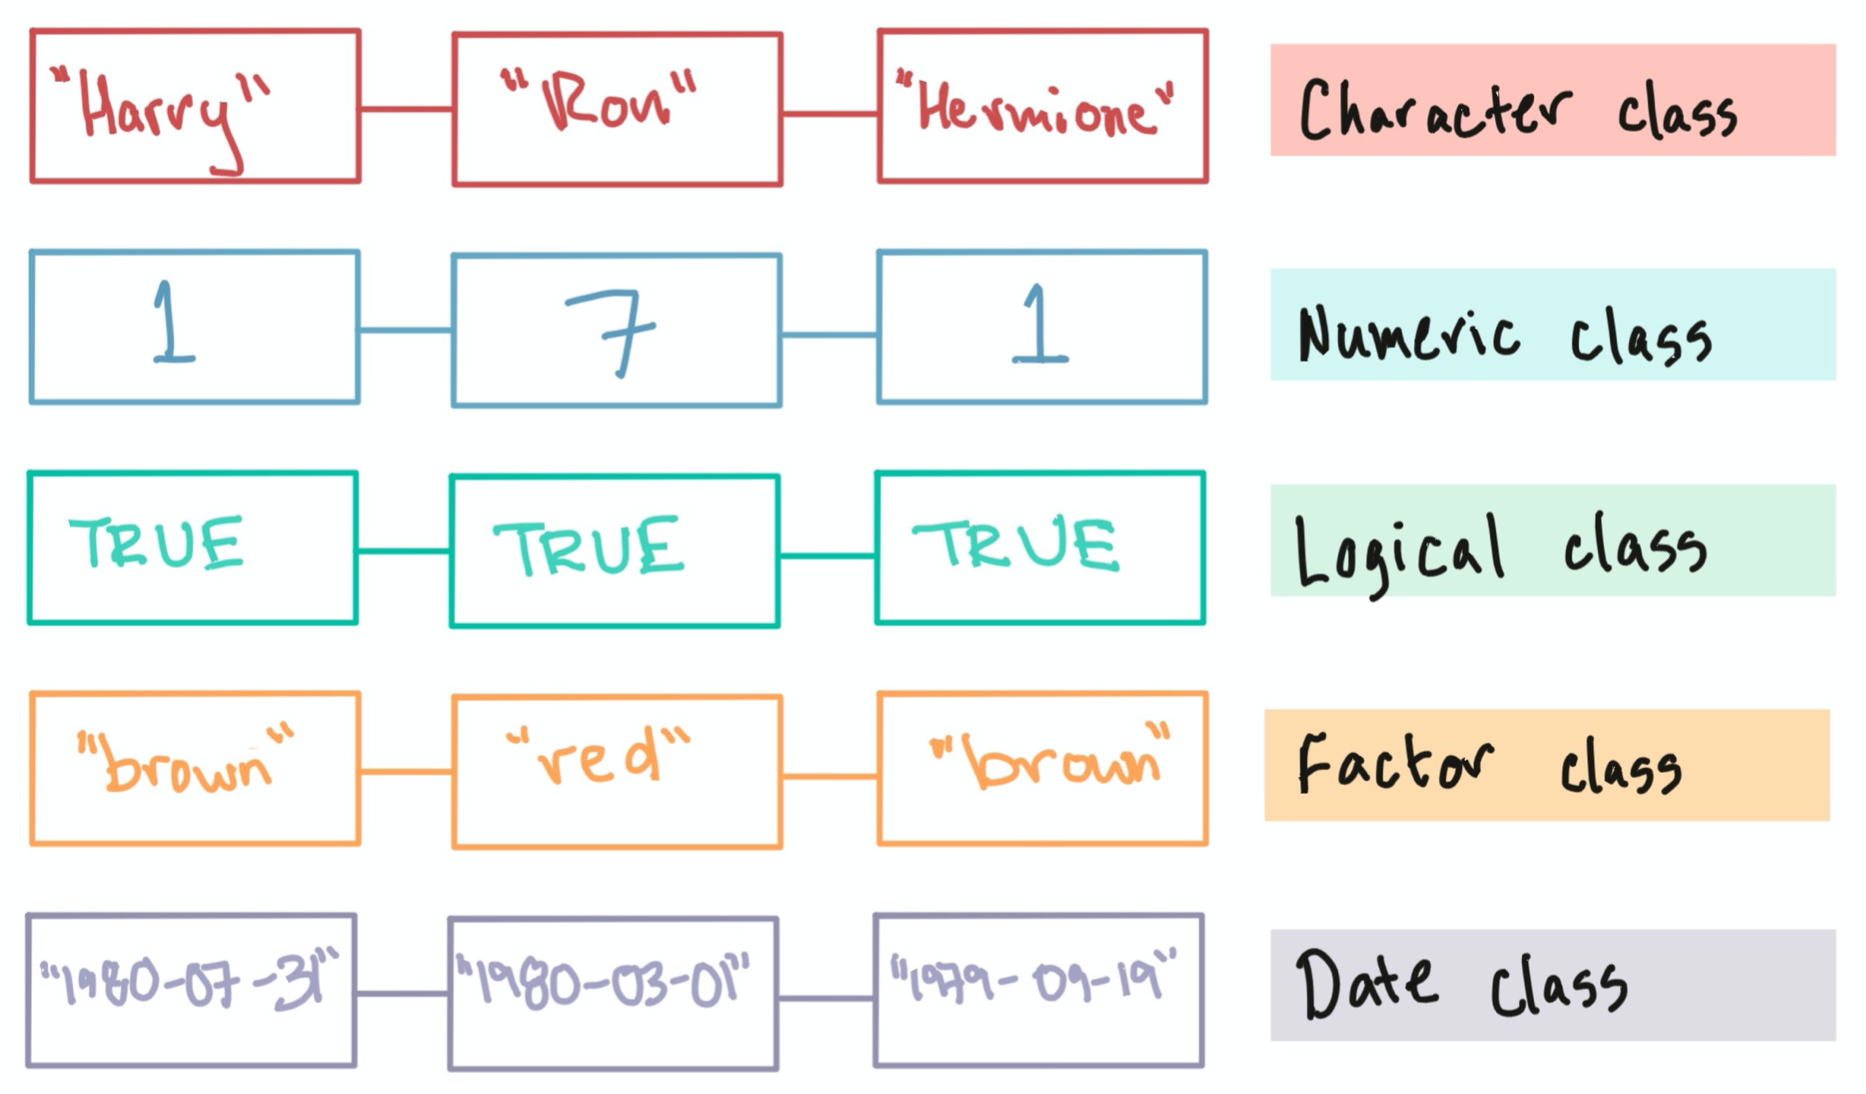 "Harry" "Ron" "Hermione" Character class
1 7 1 Numeric class
TRUE TRUE TRUE Logical class
"brown" "red" "brown" Factor class
"1980-07-31" "1980-03-01" "1979-09-19" Date class